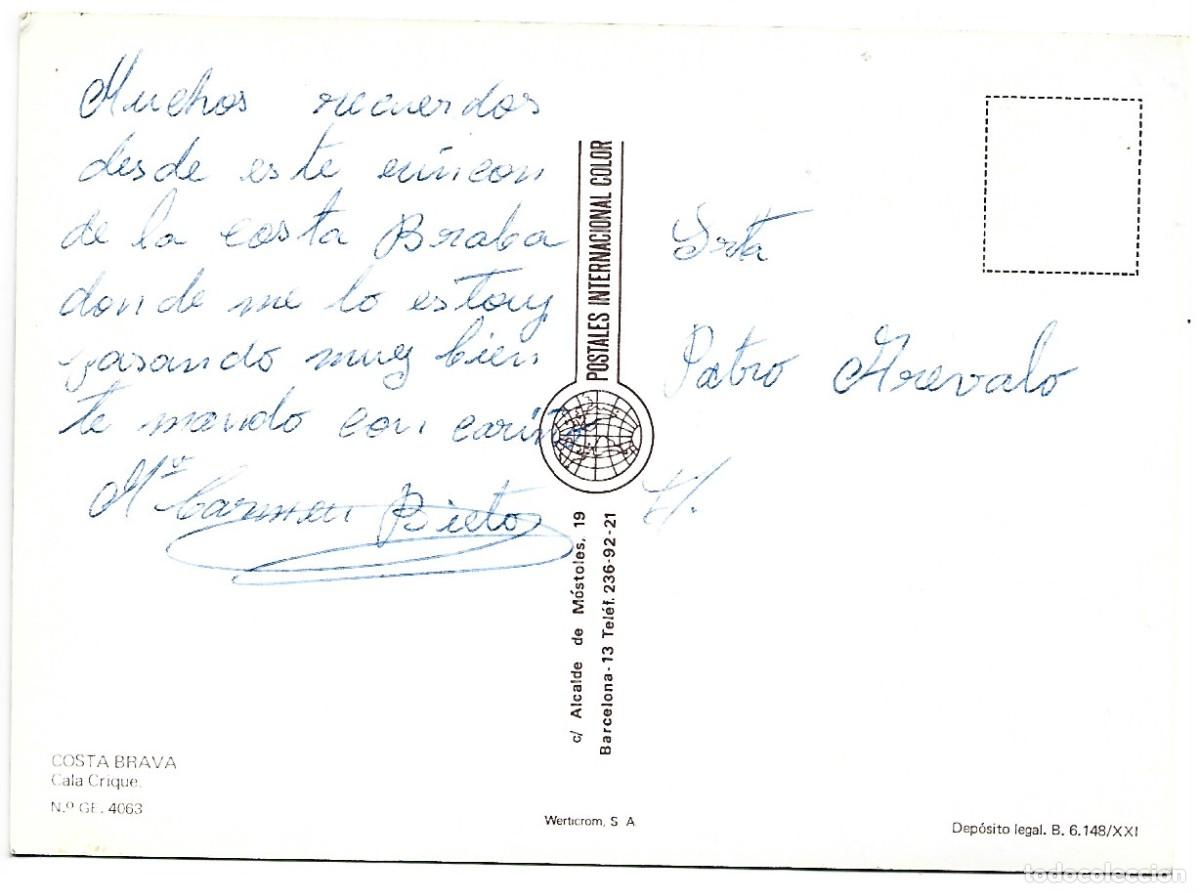 Muchos recuerdos
desde este rincon
de la costa Braba
donde me lo estoy
pasando muy bien
te mando con cariño
Mª Carmen Bieto
COSTA BRAVA
Cala Crique.
N.º GE. 4063
POSTALES INTERNACIONAL COLOR
c/ Alcalde de Móstoles, 19
Barcelona-13 Teléf. 236-92-21
Werticrom, S A
Srta
Patro Arevalo
Depósito legal. B. 6.148/XXI
todocoleccion